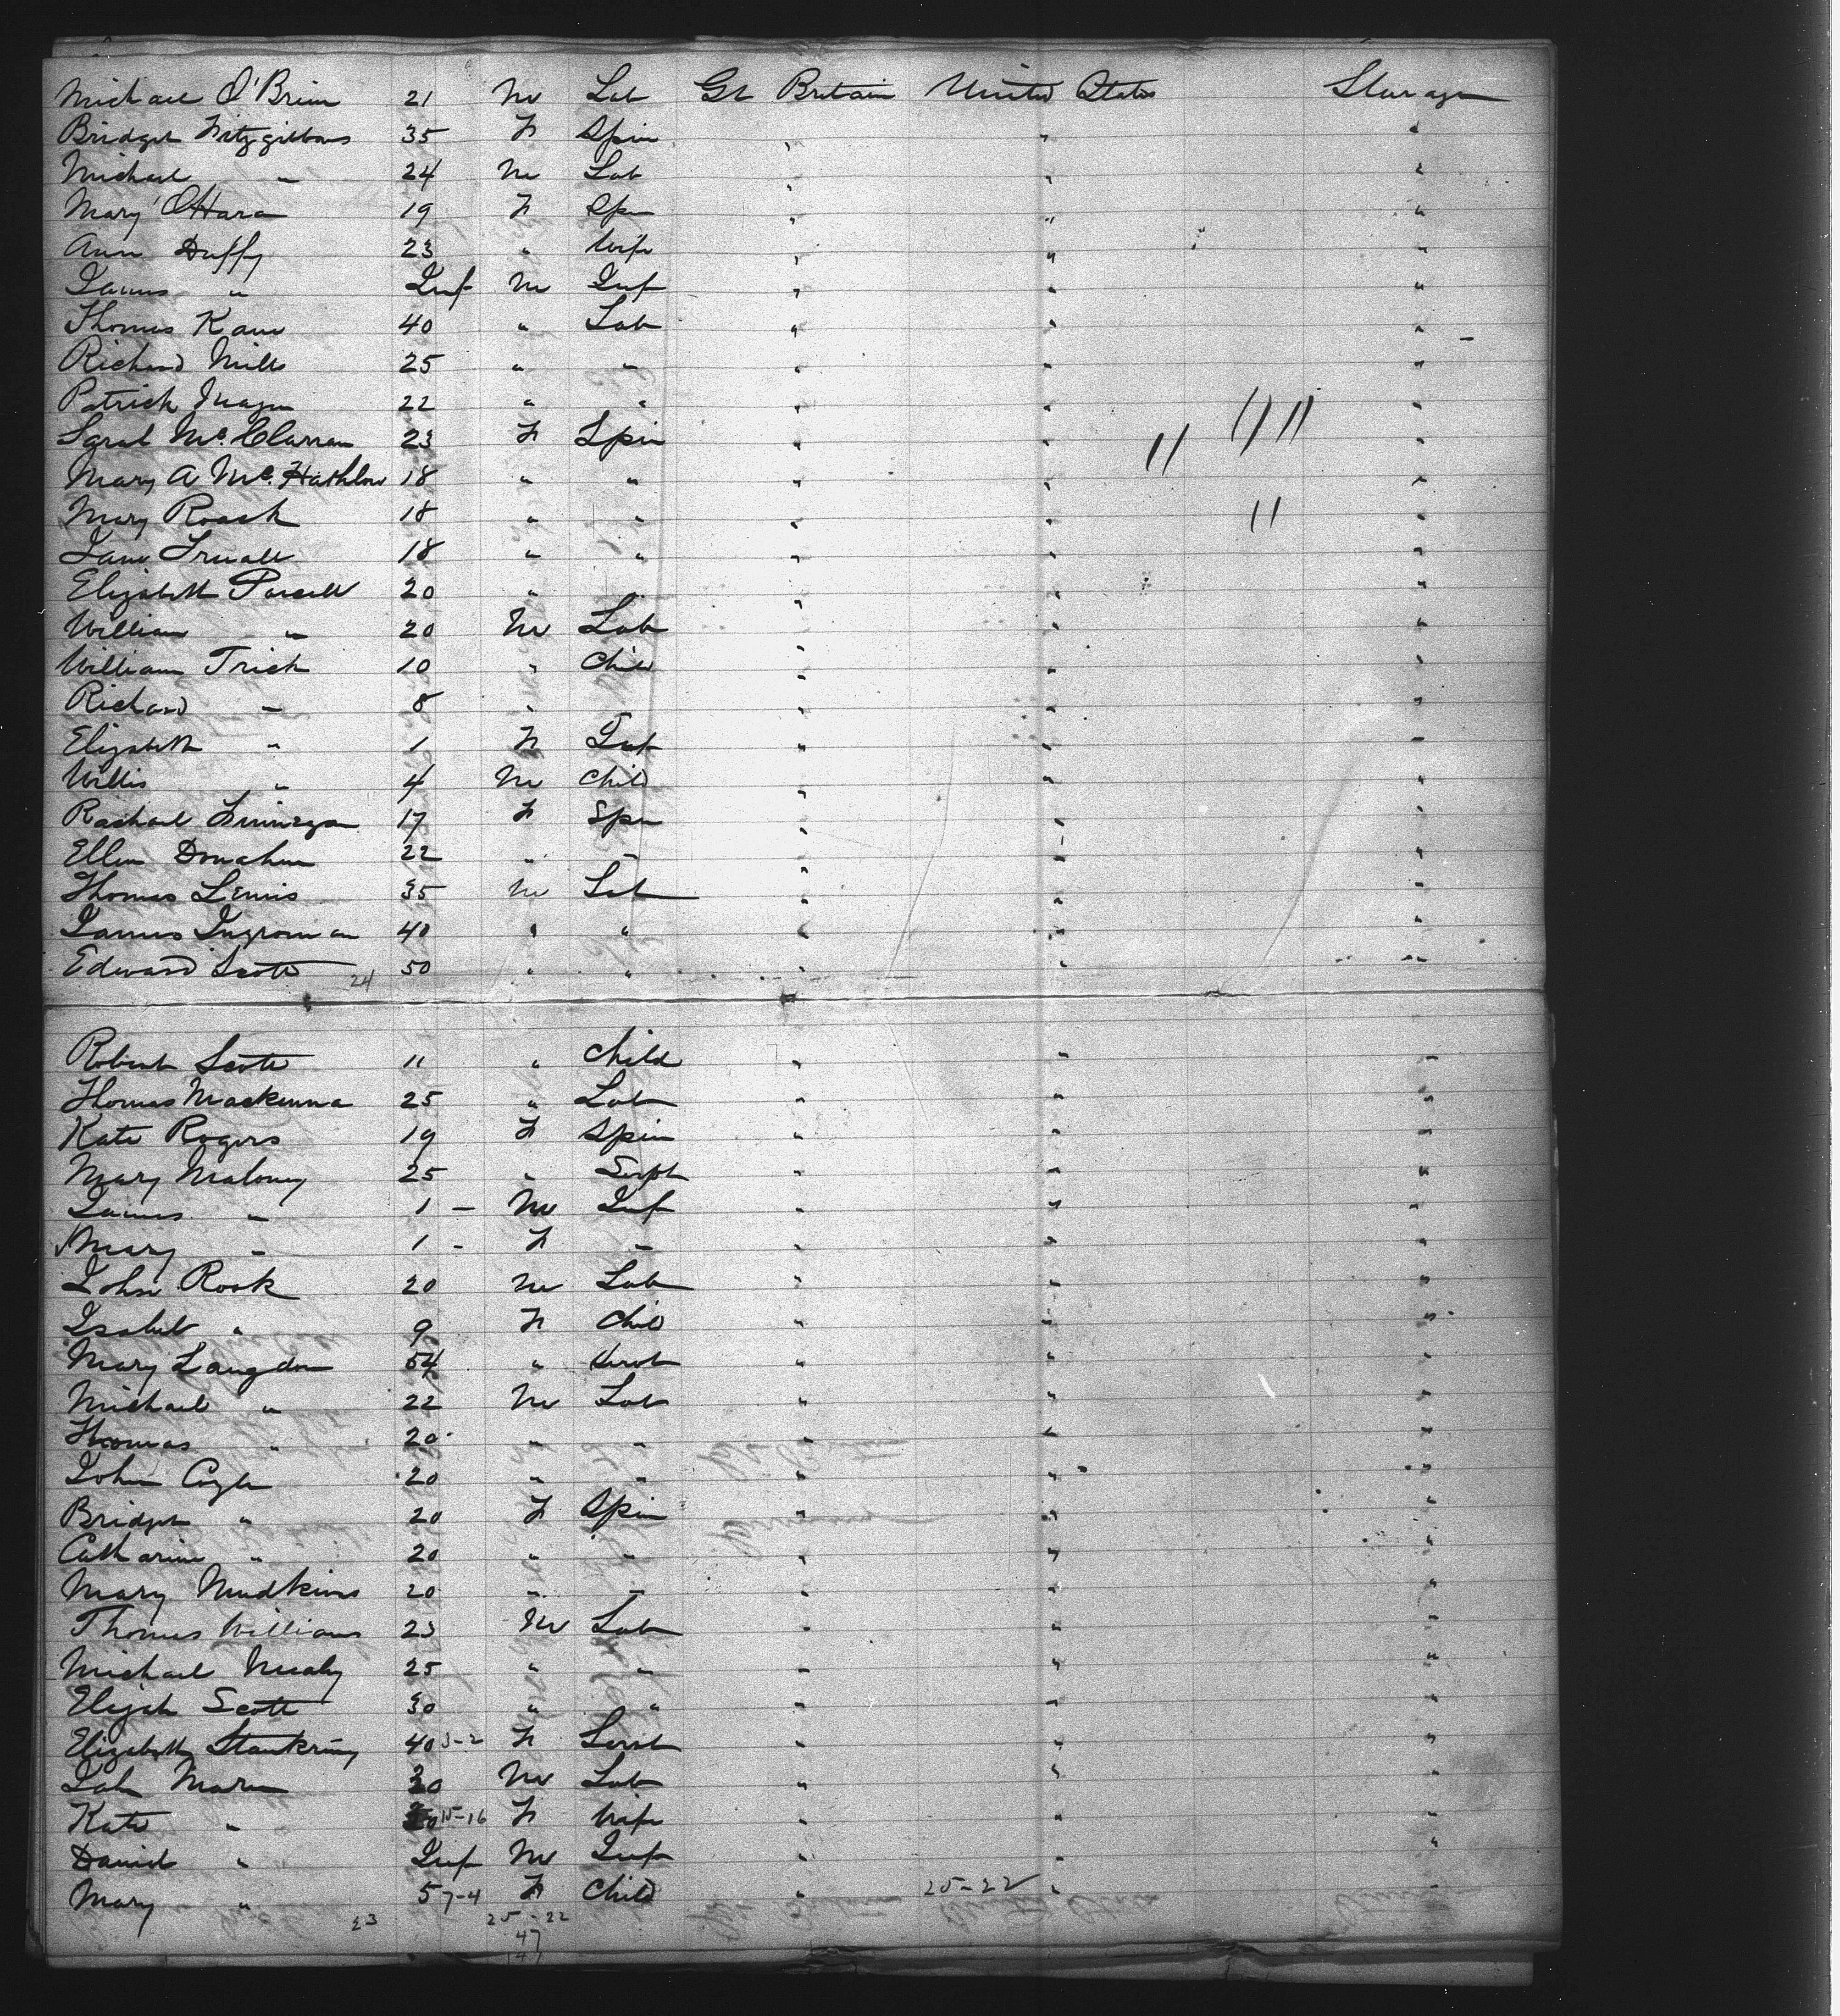 Michael O'Brien 21 M Lab Gt Britain United States Steerage
Bridget Fitzgibbons 35 F Spin " " "
Michael " 24 M Lab " " "
Mary O'Hara 19 F Spin " " "
Ann Duffy 23 " Wife " " "
James " Inf M Inf " " "
Thomas Kane 40 " Lab " " "
Richard Mills 25 " " " " "
Patrick 22 " " " " "
Sarah Mc. 23 F Spin " " "
Mary A Mc. 18 " " " " "
Mary Roach 18 " " " " "
Jane 18 " " " " "
Elizabeth Purcell 20 " " " "
William " 20 M Lab " " "
William Trick 10 " Child " " "
Richard " 8 " " " "
Elizabeth " 1 F Inf " " "
Willis " 4 M Child " " "
Rachael 17 F Spin " " "
Ellen Donahue 22 " " " " "
Thomas Lewis 35 M Lab " " "
James 40 " " " " "
Edward Scott 50 " " " " "
24
Robert Scott 11 " Child " " "
Thomas Mackenna 25 " Lab " " "
Kate Rogers 19 F Spin " " "
Mary Maloney 25 " " " "
James " 1 - M Inf " " "
Mary " 1 - F " " " "
John Rook 20 M Lab " " "
Isabel " 9 F Child " " "
Mary Langdon 54 " " " "
Michael " 22 M Lab " " "
Thomas " 20 " " " " "
John Coyle 20 " " " " "
Bridget " 20 F Spin " " "
Catharine " 20 " " " " "
Mary 20 " " " " "
Thomas Williams 23 M Lab " " "
Michael Nealy 25 " " " " "
Elijah Scott 30 " " " " "
Elizabeth 40 3-2 F " " "
M Lab " " "
Kate " 15-16 F Wife " " "
David " Inf M Inf " " "
Mary " 5 7-4 F Child " 25-22 " "
23 25-22
47